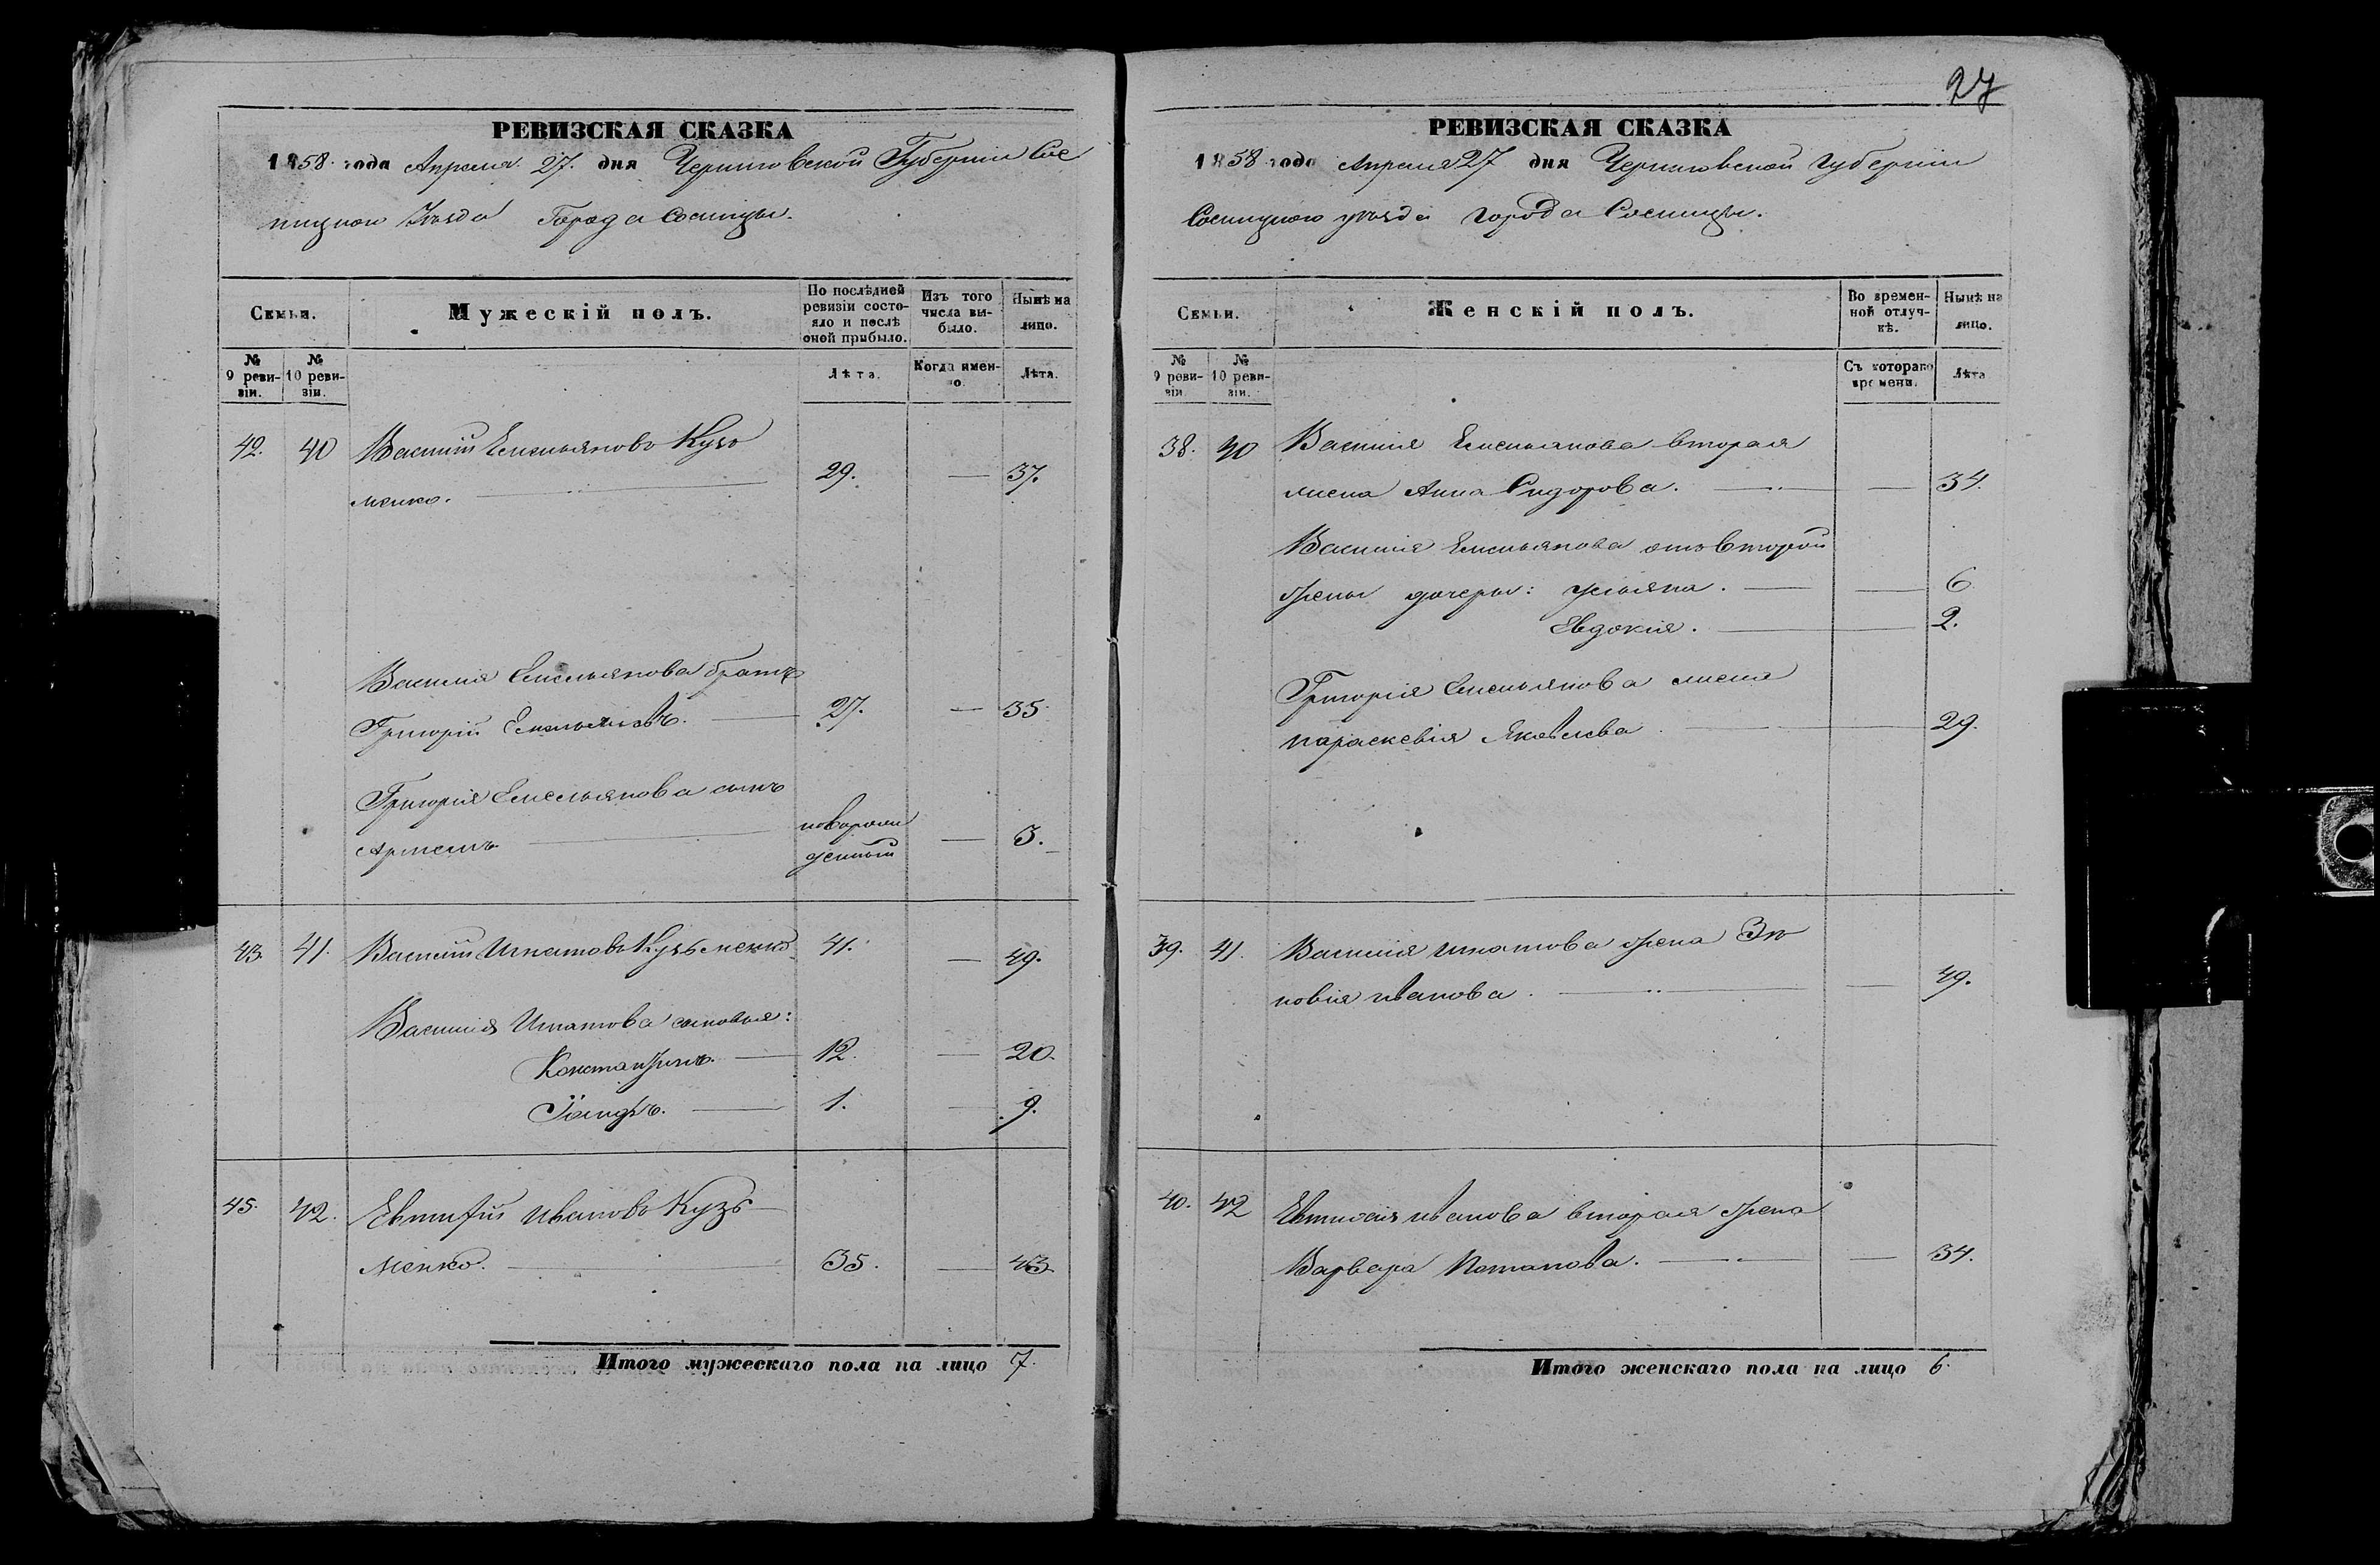 27
РЕВИЗСКАЯ СКАЗКА
1858 года Апреля 27. дня Черниговской Губернiи Сос
ницкого Уѣзда Города Сосницы.
Семьи.
Мужескiй полъ.
По послѣдней ревизiи состояло и послѣ оной прибыло.
Изъ того числа выбыло.
Нынѣ на лицо.
№ 9 ревизiи.
№ 10 ревизiи.
Лѣта.
Когда именно.
Лѣта.
42. 40 Василiй Емельяновъ Кузь
менко. 29. — 37.
Василiя Емельянова братъ
Григорiй Емельяновъ. 27. — 35
Григорiя Емельянова сынъ
Артемъ новорож
денный — 3.
43. 41. Василiй Игнатовъ Кузьменко 41. — 49.
Василiя Игнатова сыновья:
Константинъ. 12. — 20.
Iосифъ. 1. — 9.
45. 42. Евтифiй Ивановъ Кузь
менко. 35. — 43.
Итого мужескаго пола на лицо 7.
РЕВИЗСКАЯ СКАЗКА
1858 года Апреля 27 дня Черниговской губернiи
Сосницкого уѣзда города Сосницы.
Семьи.
Женскiй полъ.
Во временной отлучкѣ.
Нынѣ на лицо.
№ 9 ревизiи.
№ 10 ревизiи.
Съ котораго времени.
Лѣта
38. 40 Василiя Емельянова вторая
жена Анна Сидорова. — 34.
Василiя Емельянова отъ второй
жены дочери: Ульяна. — 6
Евдокiя. — 2.
Григорiя Емельянова жена
Параскевiя Яковлева — 29.
39. 41. Василiя Игнатова жена Зѣ
новiя Иванова. — 49.
40. 42 Евтифiя Иванова вторая жена
Варвара Потапова. — 34.
Итого женскаго пола на лицо 6.